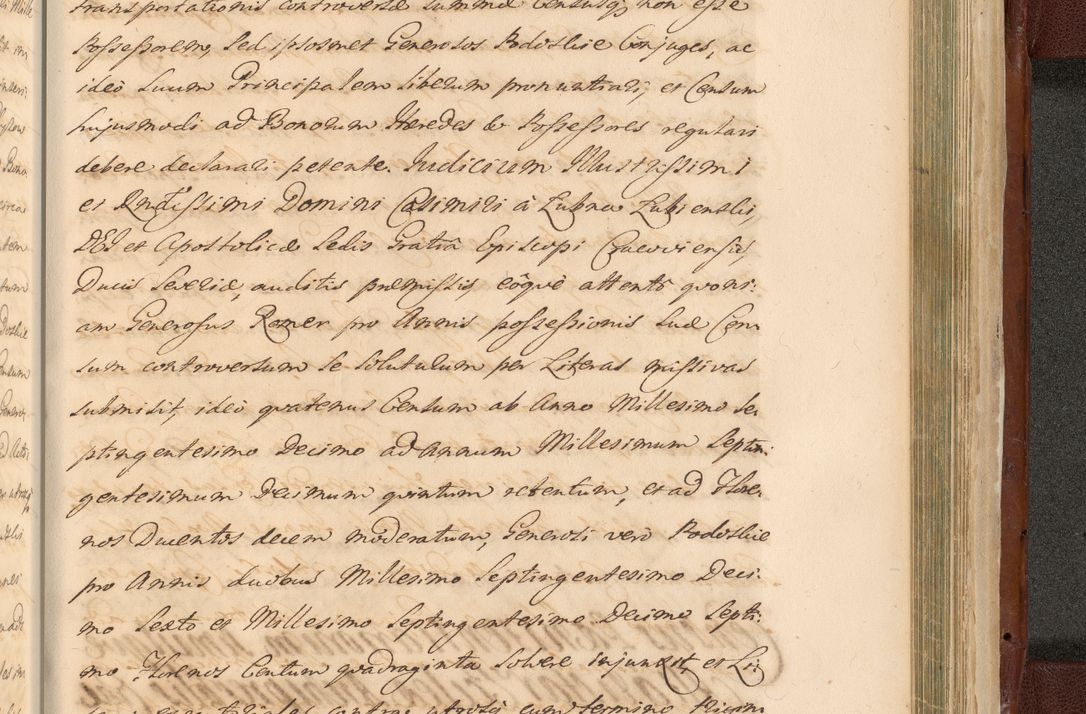 transportationis controversæ summæ Censusq; non esse
Possessorem, sed ipsosmet Generosos Podoskie Conjuges, ac
ideò suum Principalem liberum pronuntiari, et Censum
hujusmodi ad Bonorum Hæredes & Possessores regulari
debere declarari petente. Judicium Illustrissimi
et Rndissimi Domini Casimiri à Łubna Łubienski,
DEI et Apostolicæ Sedis Gratia Episcopi Cracoviensis
Ducis Severiæ, auditis præmissis, eôquè attentô quoni-
am Generosus Romer pro Annis possessionis suæ Cen
sum controversum se soluturum per Literas missivas
submisit, ideò quatenus Censum ab Anno Millesimo Se-
ptingentesimo Decimo ad Annum Millesimum Septin-
gentesimum Decimum quintum retentum, et ad Flore-
nos Ducentos decem moderatum, Generosi verò Podoskie
pro Annis duobus Millesimo Septingentesimo Deci-
mo Sexto et Millesimo Septingentesimo Decimo Septi-
mo Florenos Centum quadraginta solvere injunxit, et Li-
contrac utrosq cum termino